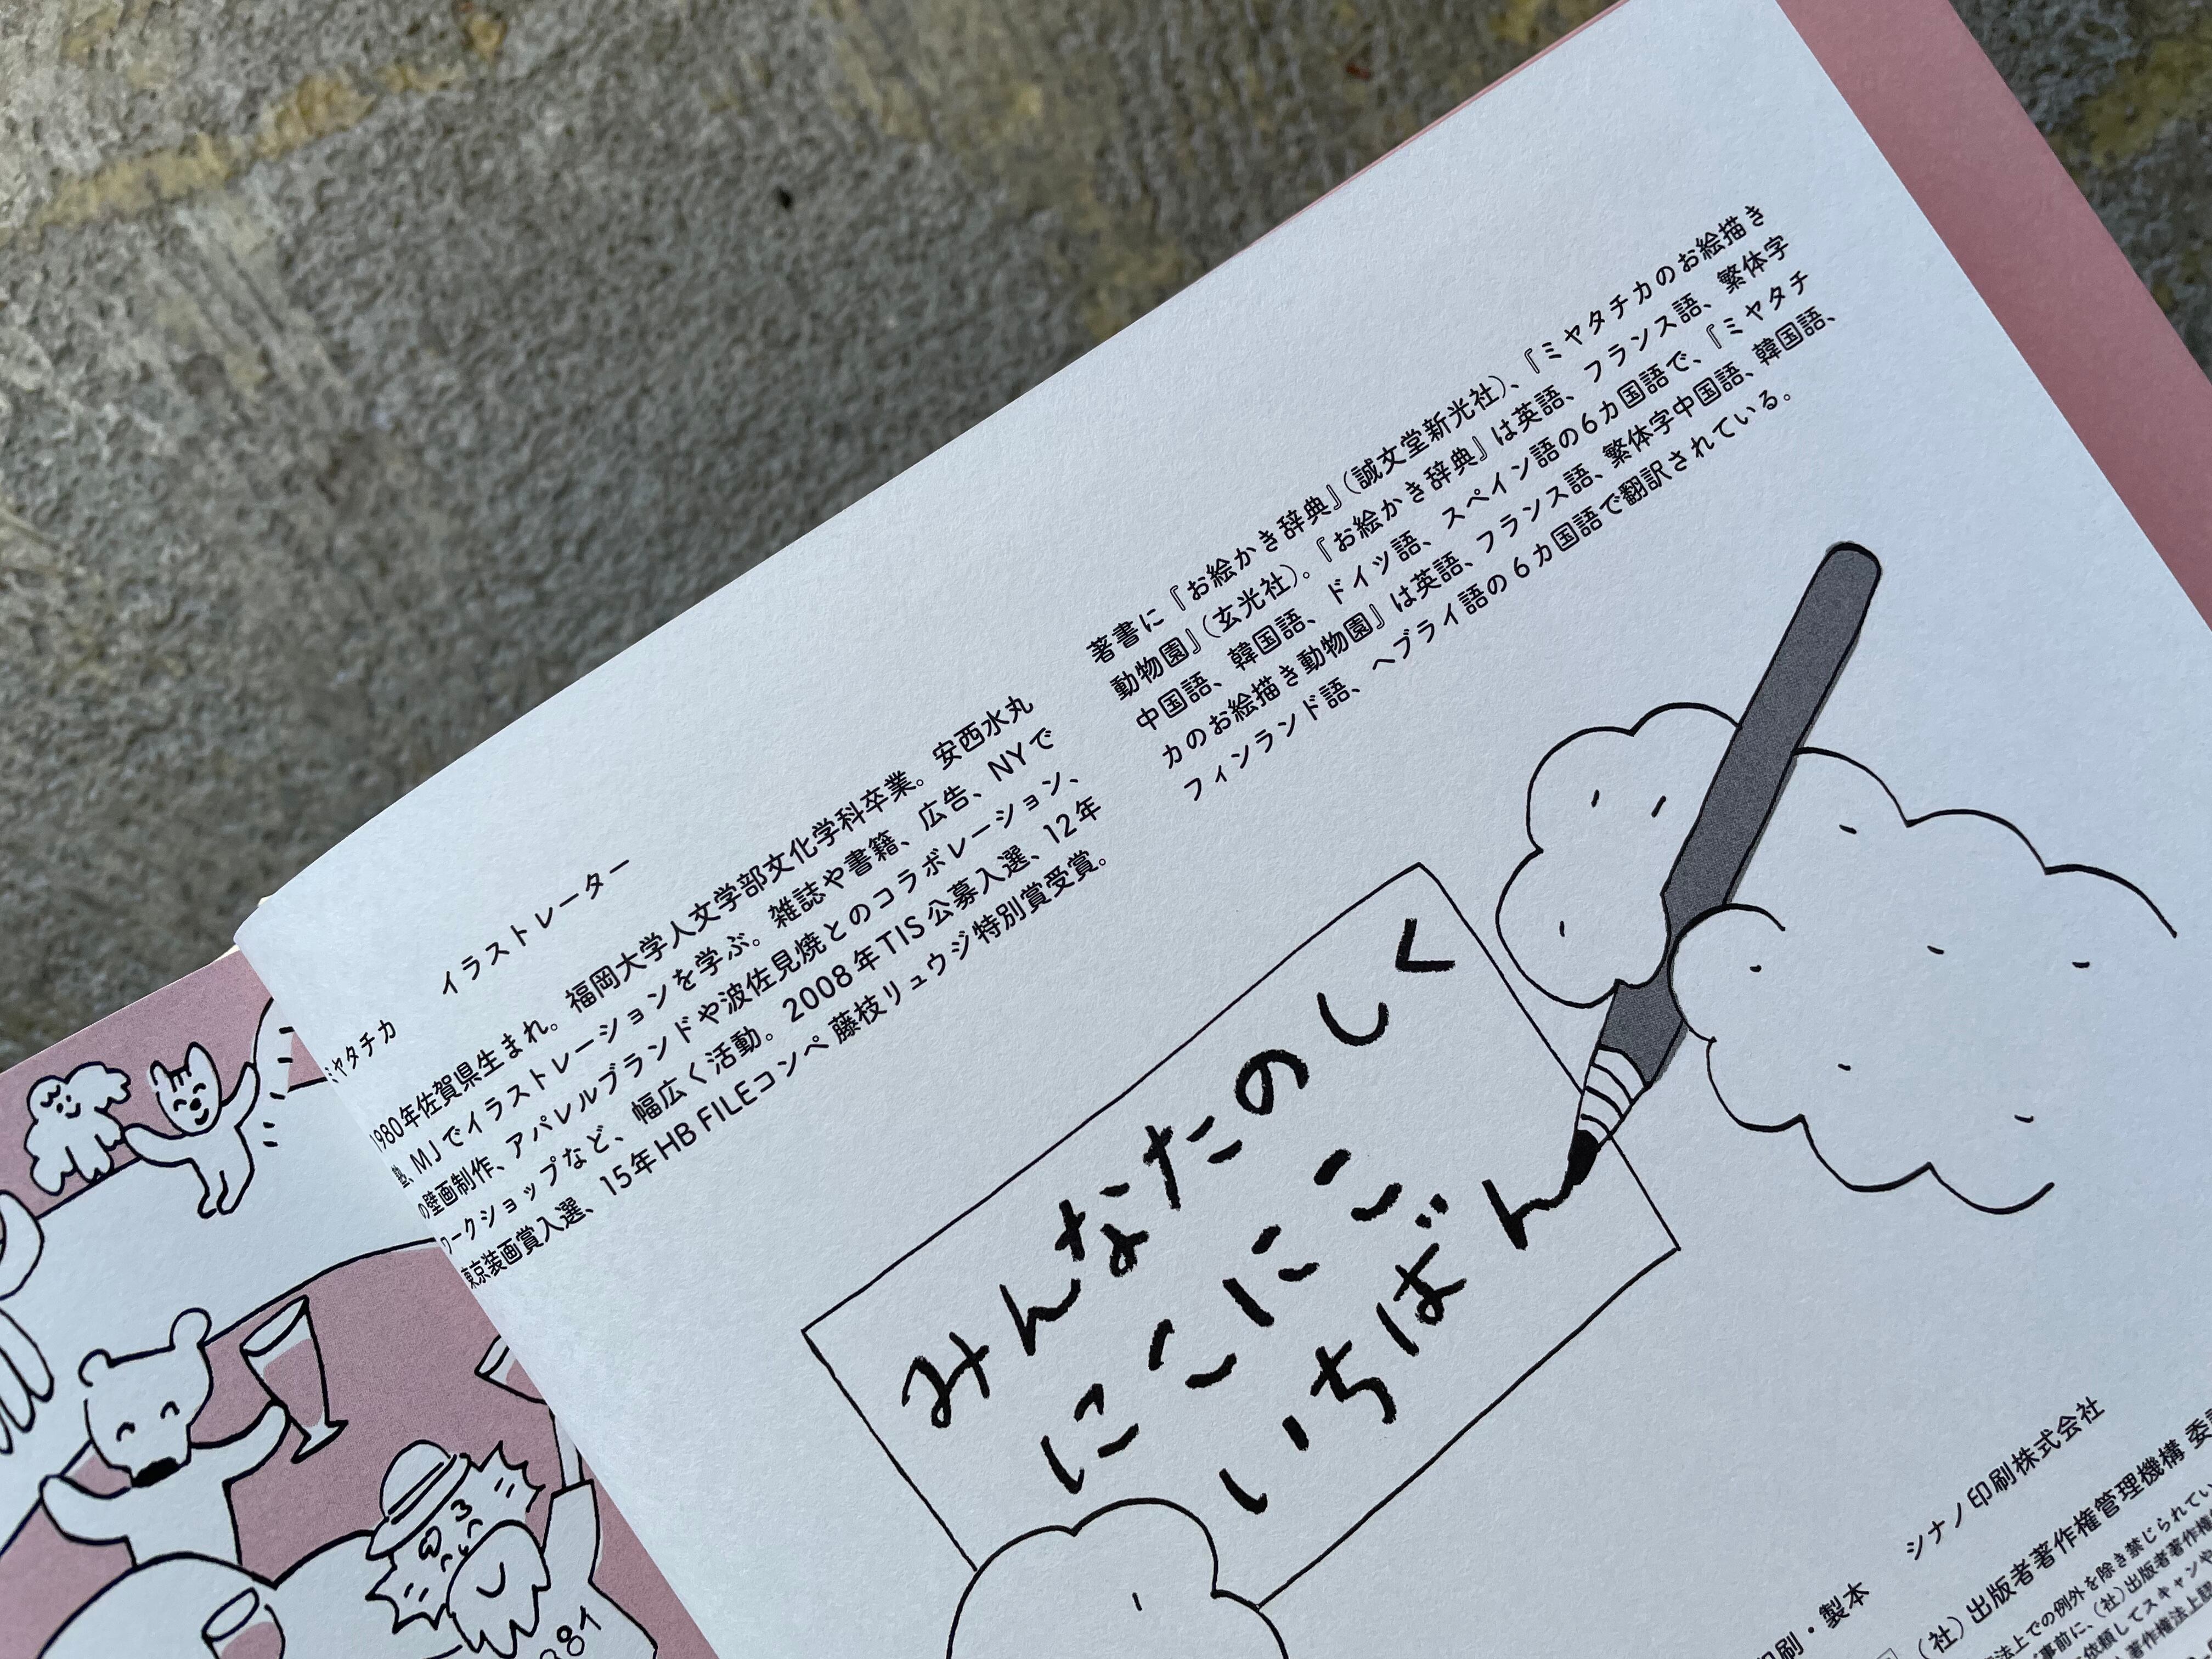 ミヤタチカ　イラストレーター
1980年佐賀県生まれ。福岡大学人文学部文化学科卒業。安西水丸
塾、MJでイラストレーションを学ぶ。雑誌や書籍、広告、NYで
の壁画制作、アパレルブランドや波佐見焼とのコラボレーション、
ワークショップなど、幅広く活動。2008年TIS公募入選、12年
東京装画賞入選、15年HB FILEコンペ 藤枝リュウジ特別賞受賞。
著書に『お絵かき辞典』（誠文堂新光社）、『ミヤタチカのお絵描き
動物園』（玄光社）。『お絵かき辞典』は英語、フランス語、繁体字
中国語、韓国語、ドイツ語、スペイン語の6カ国語で、『ミヤタチ
カのお絵描き動物園』は英語、フランス語、繁体字中国語、韓国語、
フィンランド語、ヘブライ語の6カ国語で翻訳されている。
みんなたのしく
にこにこ
いちばん
印刷・製本　シナノ印刷株式会社
（社）出版者著作権管理機構 委
法上での例外を除き禁じられてい
事前に、（社）出版者著作権
依頼してスキャンや
著作権法上
881